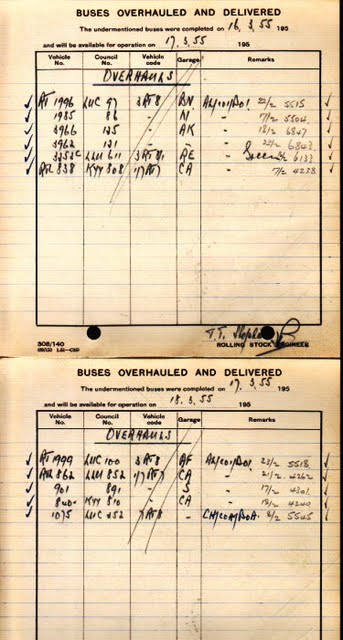 BUSES OVERHAULED AND DELIVERED
The undermentioned buses were completed on 16.3.55 195
and will be available for operation on 17.3.55 195
Vehicle No. Council No. Vehicle code Garage Remarks
OVERHAULS
RT 1996 LUC 97 3RT8 22/2 5515
1985 86 - N - 17/2 5504
3966 125 - AK - 18/2 6847
3962 121 - - - 22/2 6843
3252C LLU 611 RE 6133
RTL 838 KYY 808 CA - 7/2 4238
308/140
T.T.
ROLLING STOCK ENGINEER
BUSES OVERHAULED AND DELIVERED
The undermentioned buses were completed on 17.3.55 195
and will be available for operation on 18.3.55 195
Vehicle No. Council No. Vehicle code Garage Remarks
OVERHAULS
RT 1999 LUC 100 3RT8 AF 23/2 5518
RTL 862 LLU 852 CA - 21/2 4262
901 891 - S - 17/2 4301
840 KYY 810 - CA - 18/2 4240
1075 LUC 252 7RT8 - 5545